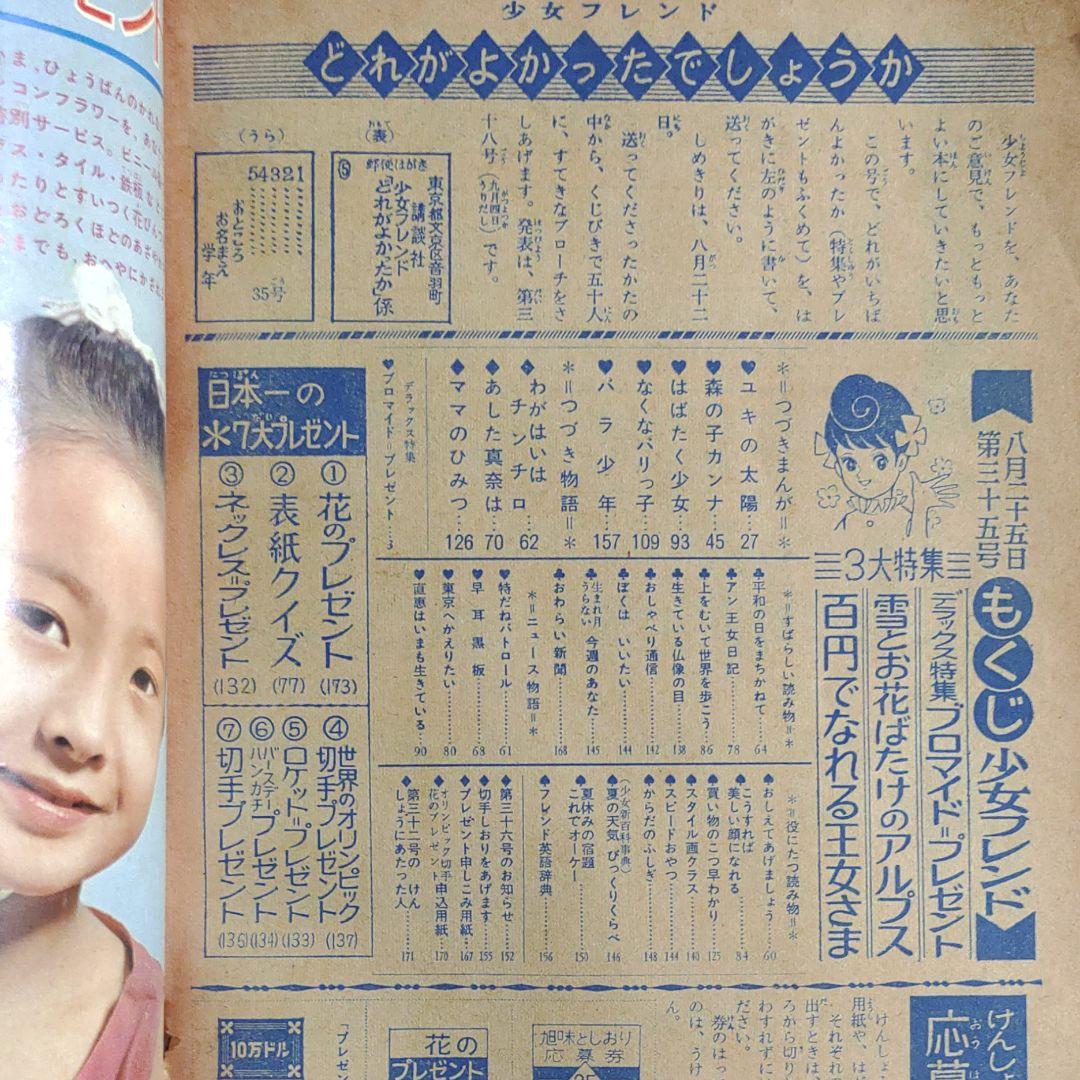 少女フレンド
どれがよかったでしょうか
少女フレンドを、あなた
のご意見で、もっともっと
よい本にしていきたいと思
います。
この号で、どれがいちば
んよかったか（特集やプレ
ゼントもふくめて）を、は
がきに左のように書いて、
送ってください。
しめきりは、八月二十二
日。
送ってくださったかたの
中から、くじびきで五十人
に、すてきなブローチをさ
しあげます。発表は、第三
十八号（九月四日うりだし）です。
（表）
郵便はがき
東京都文京区音羽町
講談社
少女フレンド
「どれがよかったか」係
（うら）
54321
35号
おところ
お名まえ
学年
八月二十五日
第三十五号
もくじ
少女フレンド
3大特集
デラックス特集
ブロマイド=プレゼント
雪とお花ばたけのアルプス
百円でなれる王女さま
＊=つづきまんが=＊
♥ユキの太陽…27
♥森の子カンナ…45
♥はばたく少女…93
♥なくなパリっ子…109
♥バラ少年…157
＊=つづき物語=＊
◆わがはいは
チンチロ…62
◆あした真奈は…70
◆ママのひみつ…126
デラックス特集
♥ブロマイド=プレゼント…3
＊=すばらしい読み物=＊
♣平和の日をまちかねて…64
♣アン王女日記…78
♣上をむいて世界を歩こう…86
♣生きている仏像の目…138
♣おしゃべり通信…142
♣ぼくは いいたい…144
♣生まれ月うらない 今週のあなた…145
♣おわらい新聞…168
＊=ニュース物語=＊
♥特だねパトロール…61
♥早耳黒板…68
♥東京へかえりたい…80
♥直恵はいまも生きている…90
＊=役にたつ読み物=＊
♠おしえてあげましょう…60
♠こうすれば
美しい顔になれる…84
♠買い物のこつ早わかり…125
♠スタイル画クラス…140
♠スピードおやつ…144
♠からだのふしぎ…148
（少女新百科事典）
♠夏の天気 びっくりくらべ…146
♠夏休みの宿題
これでオーケー…150
♠フレンド英語辞典…156
◆第三十六号のお知らせ…152
◆切手しおりをあげます…155
◆プレゼント申しこみ用紙…167
◆オリンピック切手
花のプレゼント 申込用紙…170
◆第三十二号のけん
しょうにあたった人…171
日本一の
＊7大プレゼント
①花のプレゼント(173)
②表紙クイズ(77)
③ネックレス=プレゼント(132)
④世界のオリンピック
切手プレゼント(137)
⑤ロケット=プレゼント(133)
⑥バースデー=プレゼント
ハンカチ(134)
⑦切手プレゼント(135)
ま、ひょうばんのかれ
コンフラワーを、あな
別サービス。ビニール
ス・タイル・鉄板な
たりとすいつく花びん
おどろくほどのあざや
までも、おへやにかざれ
けんしょ
応募
けんしょ
用紙や、はが
それぞれの
出すときは、
ろから切り
わすれずに
ださい。
券のはって
のは、うけ
ん。
旭味としおり
応募券
35
花の
プレゼント
「プレゼン
10万ドル